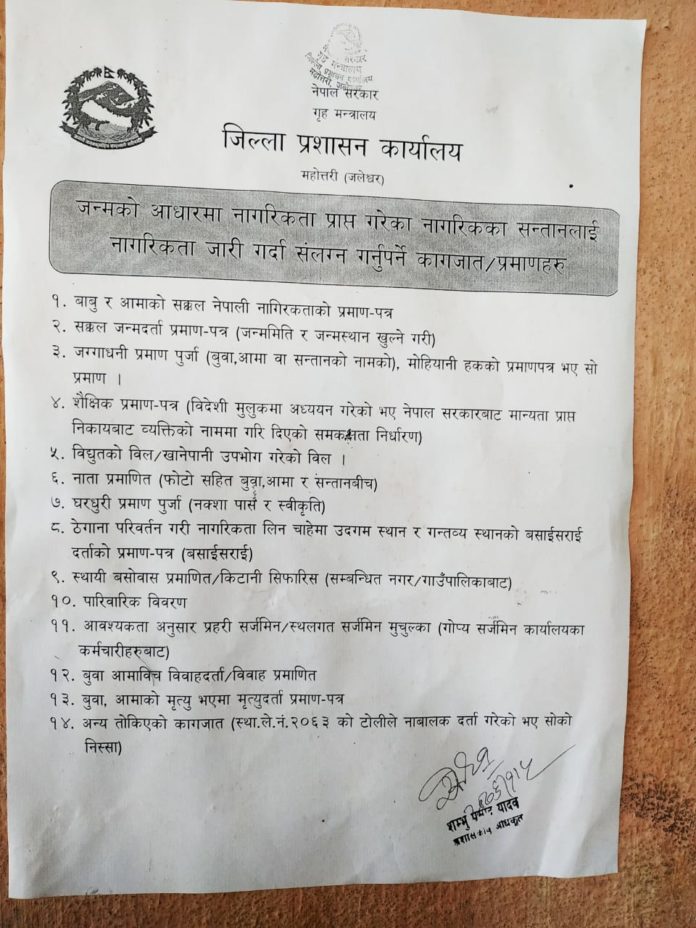 नेपाल सरकार
गृह मन्त्रालय
जिल्ला प्रशासन कार्यालय
महोत्तरी (जलेश्वर)
जन्मको आधारमा नागरिकता प्राप्त गरेका नागरिकका सन्तानलाई
नागरिकता जारी गर्दा संलग्न गर्नुपर्ने कागजात/प्रमाणहरु
१. बाबु र आमाको सक्कल नेपाली नागिरकताको प्रमाण-पत्र
२. सक्कल जन्मदर्ता प्रमाण-पत्र (जन्ममिति र जन्मस्थान खुल्ने गरी)
३. जग्गाधनी प्रमाण पुर्जा (बुवा,आमा वा सन्तानको नामको), मोहियानी हकको प्रमाणपत्र भए सो
प्रमाण ।
४. शैक्षिक प्रमाण-पत्र (विदेशी मुलुकमा अध्ययन गरेको भए नेपाल सरकारबाट मान्यता प्राप्त
निकायबाट व्यक्तिको नाममा गरि दिएको समकक्षता निर्धारण)
५. विद्युतको विल/खानेपानी उपभोग गरेको विल ।
६. नाता प्रमाणित (फोटो सहित बुवा,आमा र सन्तानबीच)
७. घरधुरी प्रमाण पुर्जा (नक्शा पास र स्वीकृति)
८. ठेगाना परिवर्तन गरी नागरिकता लिन चाहेमा उदगम स्थान र गन्तव्य स्थानको बसाईसराई
दर्ताको प्रमाण-पत्र (बसाईसराई)
९. स्थायी बसोवास प्रमाणित/किटानी सिफारिस (सम्बन्धित नगर/गाउँपालिकाबाट)
१०. पारिवारिक विवरण
११. आवश्यकता अनुसार प्रहरी सर्जमिन/स्थलगत सर्जमिन मुचुल्का (गोप्य सर्जमिन कार्यालयका
कर्मचारीहरुबाट)
१२. बुवा आमाविच विवाहदर्ता/विवाह प्रमाणित
१३. बुवा, आमाको मृत्यु भएमा मृत्युदर्ता प्रमाण-पत्र
१४. अन्य तोकिएको कागजात (स्था.ले.नं.२०६३ को टोलीले नाबालक दर्ता गरेको भए सोको
निस्सा)
शम्भु प्रसाद यादव
प्रशासकीय अधिकृत